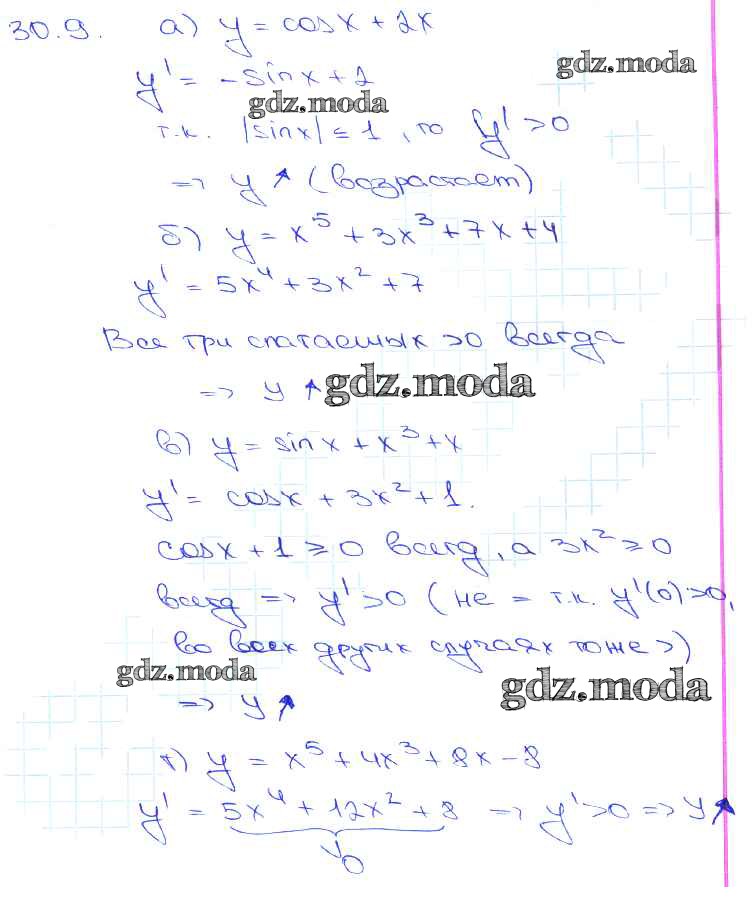 30.9. а) y = cosx + 2x
y' = -sinx + 2
gdz.moda
gdz.moda
т.к. |sinx| ≤ 1, то y' > 0
=> y ↑ (возрастает)
б) y = x⁵ + 3x³ + 7x + 4
y' = 5x⁴ + 3x² + 7
Все три слагаемых >0 всегда
=> y ↑
gdz.moda
в) y = sinx + x³ + x
y' = cosx + 3x² + 1.
cosx + 1 ≥ 0 всегд, а 3x² ≥ 0
всегд => y' > 0 (не = т.к. y'(0) > 0,
во всех других случаях тоже >)
gdz.moda
gdz.moda
=> y ↑
г) y = x⁵ + 4x³ + 8x - 8
y' = 5x⁴ + 12x² + 8 => y' > 0 => y ↑
∨
0